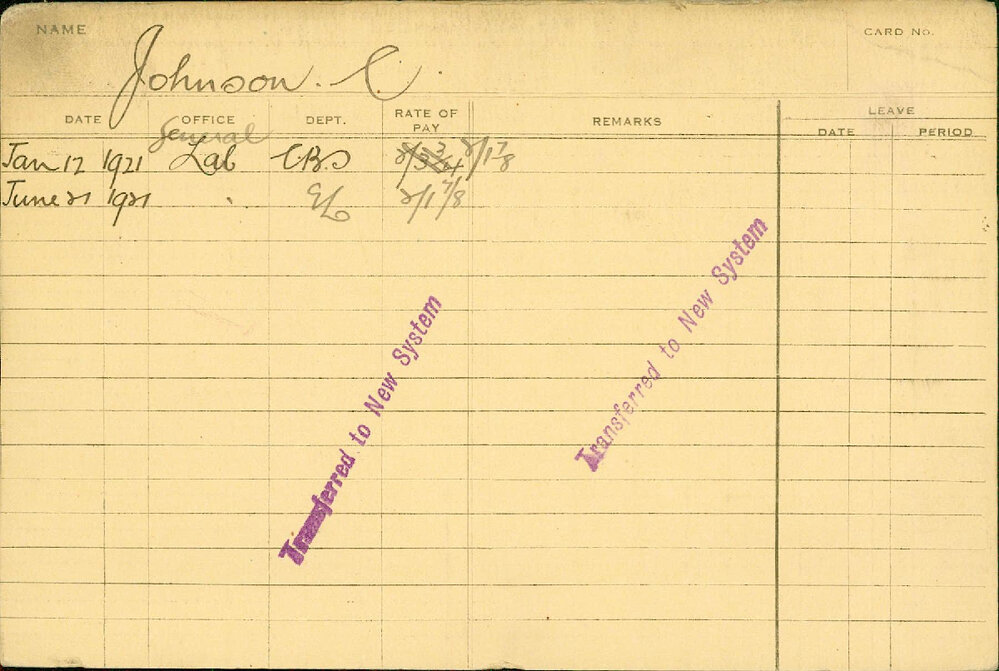 NAME Johnson. C. CARD No.
DATE OFFICE DEPT. RATE OF PAY REMARKS LEAVE
DATE PERIOD
General
Jan 12 1921 Lab C.B.S 2/1 7/8
June 21 1921 " E/Lo 2/1 7/8
Transferred to New System
Transferred to New System